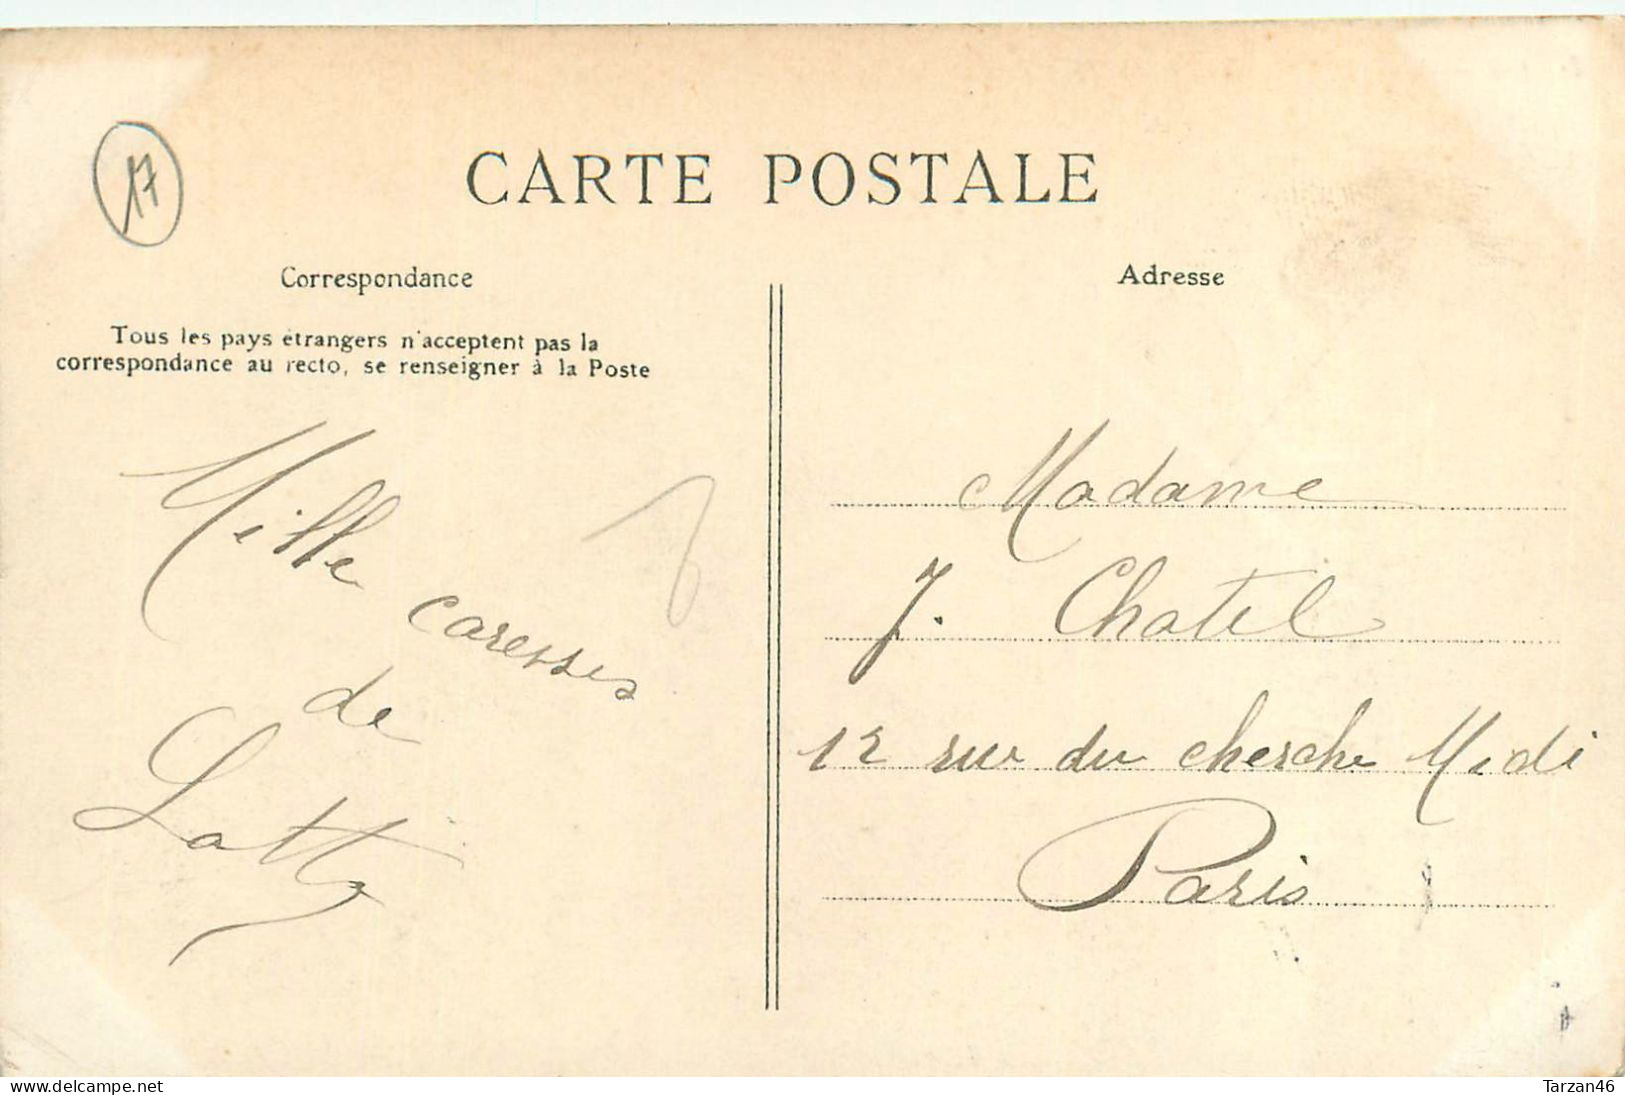 17
CARTE POSTALE
Correspondance
Tous les pays étrangers n'acceptent pas la
correspondance au recto, se renseigner à la Poste
Mille
caresses
de
Adresse
Madame
J. Chatel
12 rue du cherche Midi
Paris
www.delcampe.net
Tarzan46